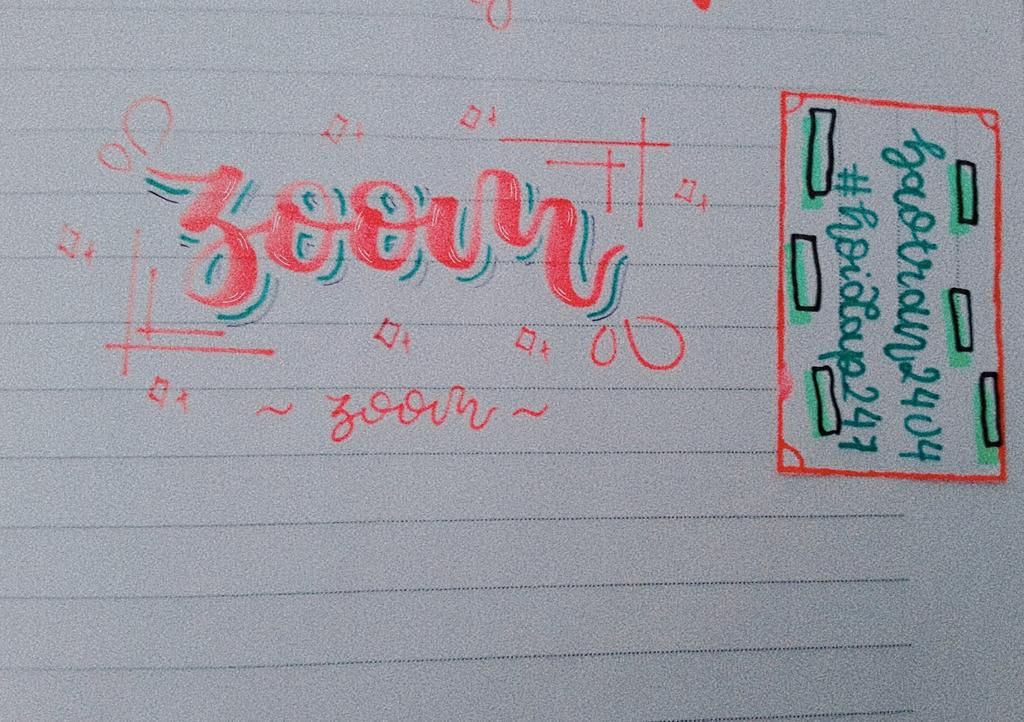 zoom
~ zoom ~
haotran2404
#hoidap247